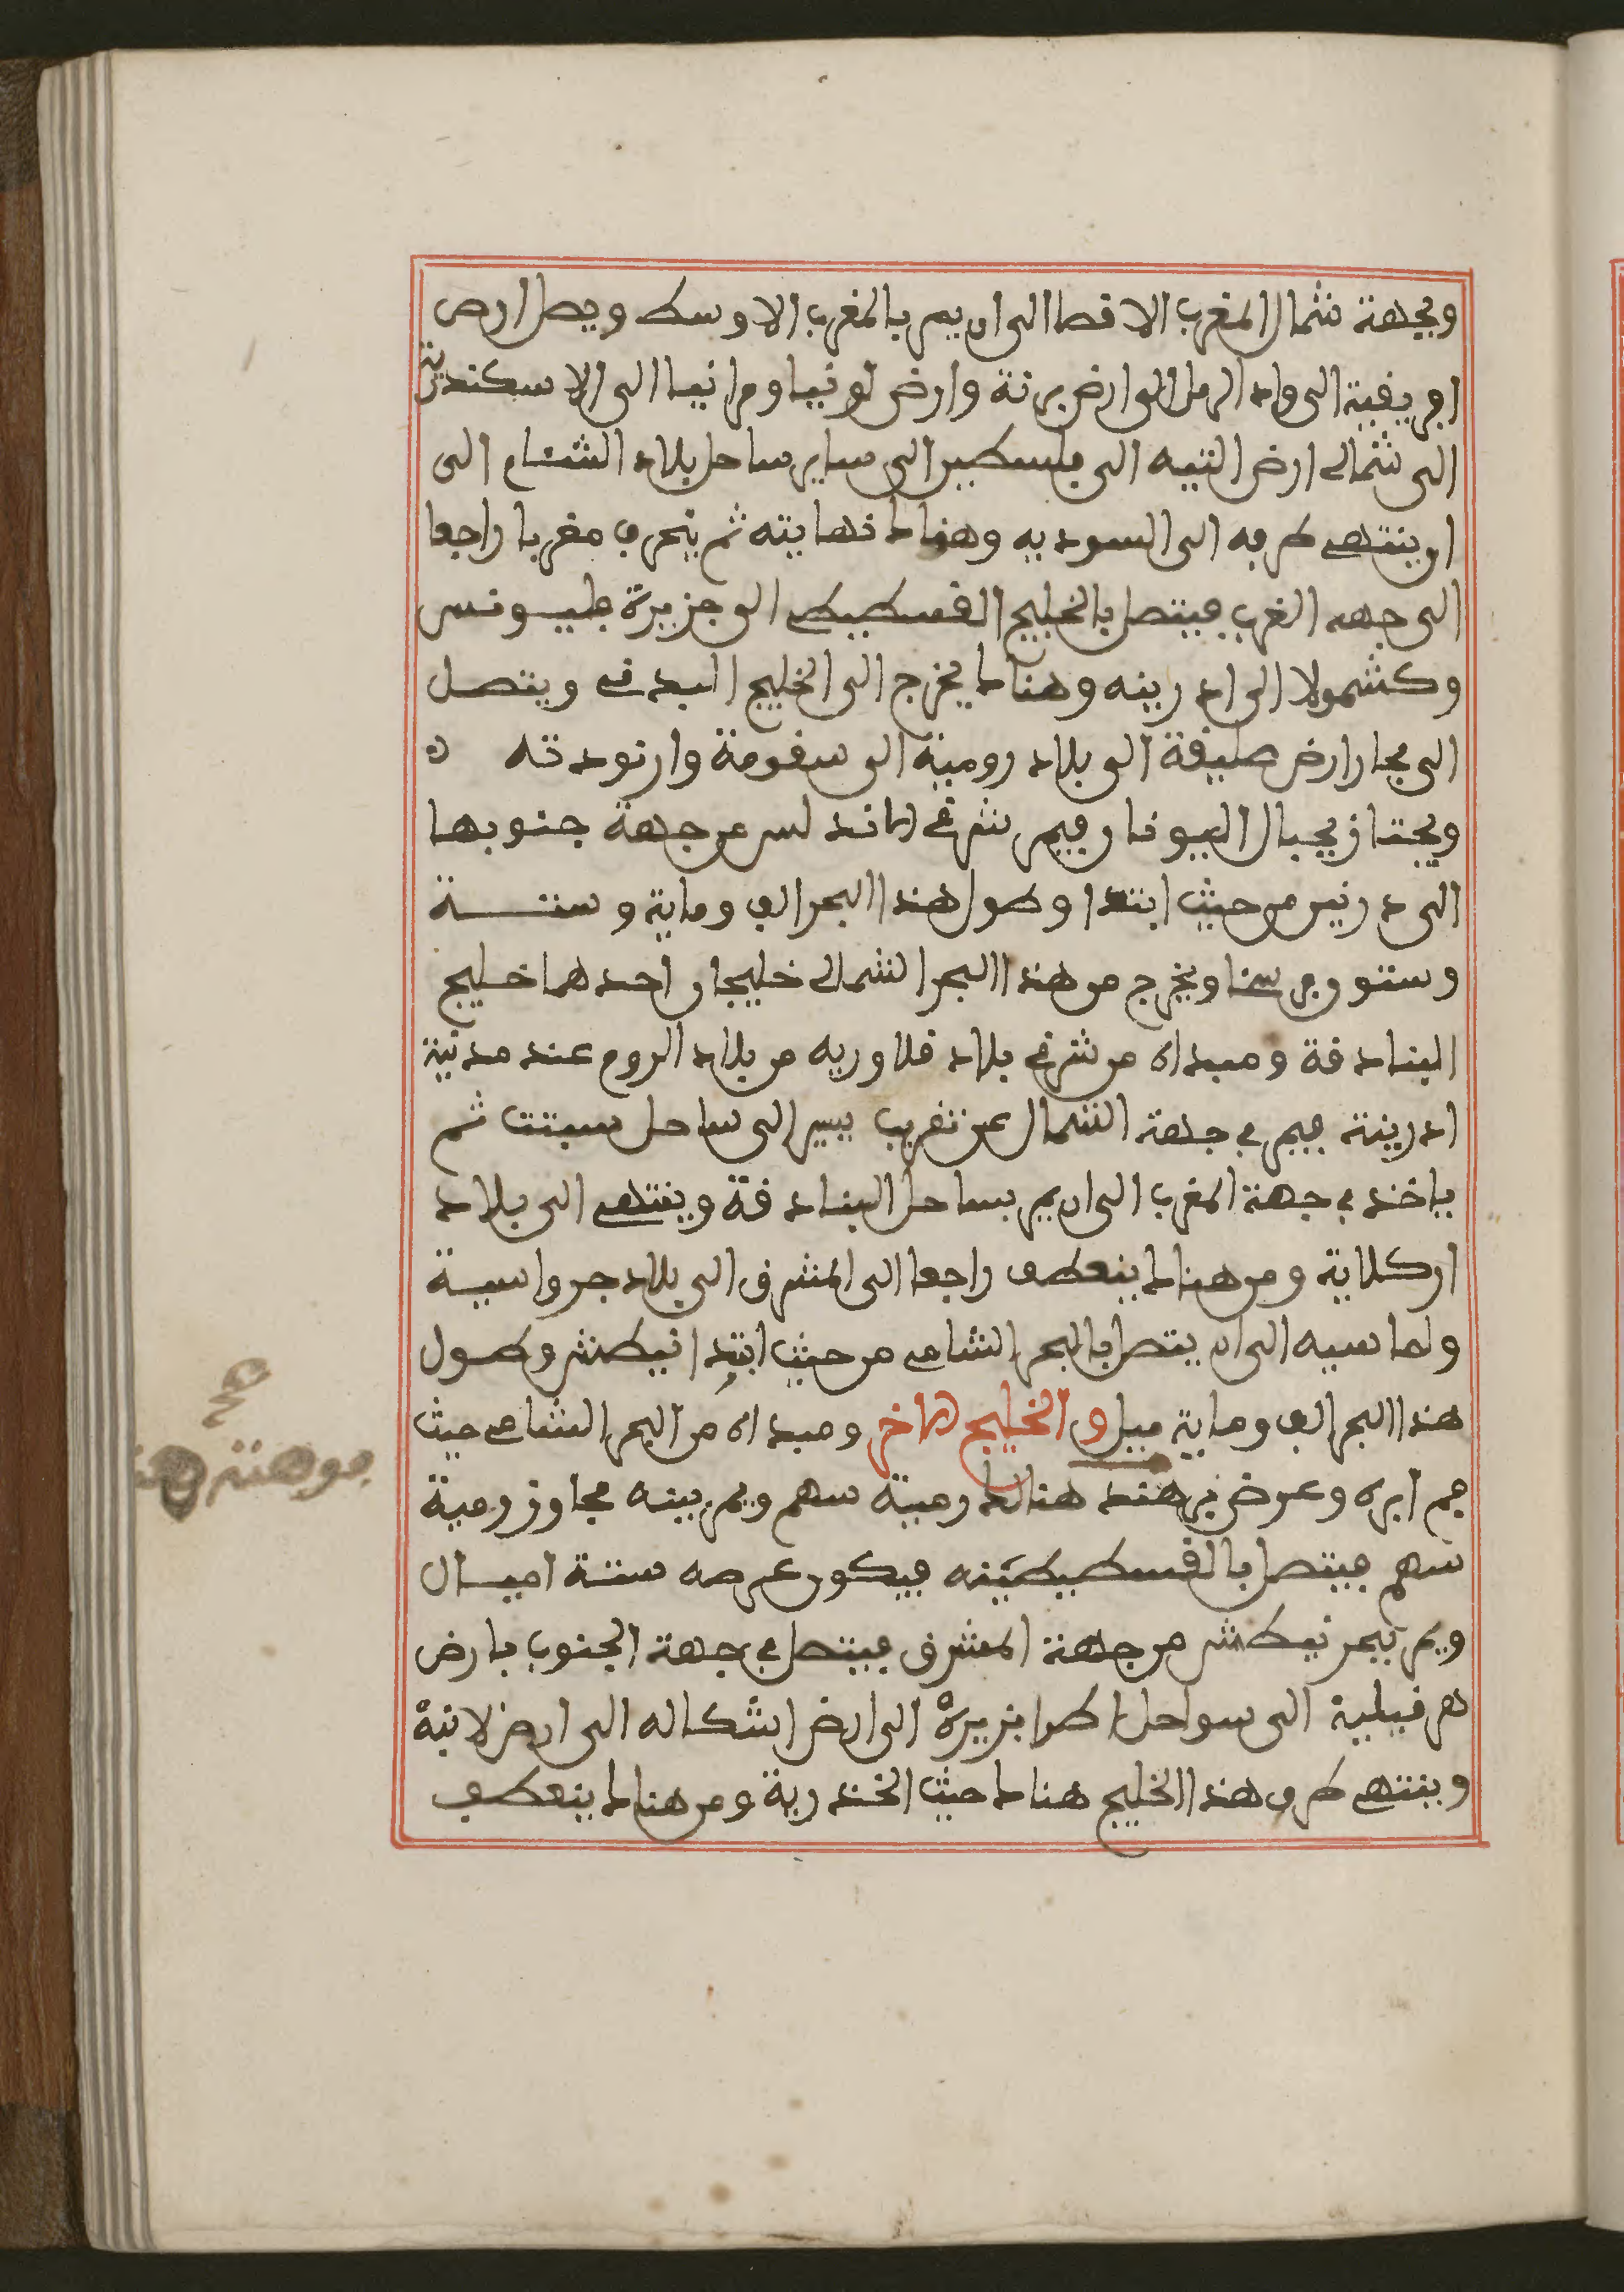 وبجهة شمال المغرب الاقصا الى ان يمر بالمغرب الاوسط ويصل ارض
افريفية الى واد الرمل الى ارض برنة وارض لونيا ومرانيا الى الاسكندرية
الى شمالى ارض التيه الى فلسطين الى ساير ساحل بلاد الشام الى
ان ينتهى طرفه الى السوديه وهناك نهايته ثم ينحرف مغربا راجعا
الى جهه الغرب فيتصل بالخليج القسطيطى الى جزيرة بليونس
وكشمولا الى ادرينه وهناك يخرج الى الخليج البدفى ويتصل
الى مجاز ارض صليفة الى بلاد رومية الى سفومة وارنودته ه
ويجتاز بجبال البيونات فيمر شرقى الاندلس من جهة جنوبها
الى درنين من حيث ابتدا وطول هذا البحر الف وماية وستة
وستون فرسخا ويخرج من هذا البحر الشمالى خليجان احدهما خليج
البنادفة ومبداه من شرقى بلاد قلاوريه من بلاد الروم عند مدنية
ادرينة فيمر فى جهة الشمال عن تغريب يسير الى ساحل سبنت ثم
ياخذ فى جهة المغرب الى ان يمر بساحل البنادفة وينتهى الى بلاد
اركلاية ومن هناك ينعطف راجعا الى المشرق الى بلاد جرواسية
ولماسيه الى ان يتصل بالبحر الشامى من حيث ابتدا نيطش وطول
هذا البحر الف وماية ميل والخليج الاخر ومبداه من البحر الشامى حيث
فم ابره وعرض فوهته هنالك رمية سهم ويمر بينه مجاوز رمية
سهم فيتصل بالقسطيطينه فيكون عرضه ستة اميال
ويمر ببحر نيطش من جهة المشرق فيتصل فى جهة الجنوب بارض
هرقيلية الى سواحل اطرابزيرة الى ارض اشكاله الى ارض لانية
وينتهى طرف هذا الخليج هناك حيث الخندرية ومن هناك ينعطف
صح
فوهته هنا